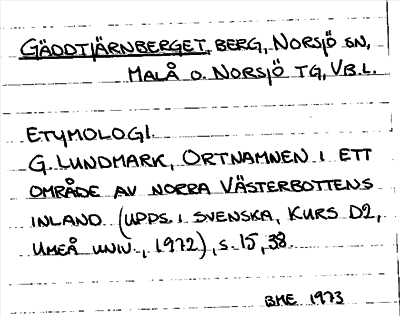 GÄDDTJÄRNBERGET, BERG, NORSJÖ SN,
MALÅ O. NORSJÖ TG, VB.L.
ETYMOLOGI.
G. LUNDMARK, ORTNAMNEN I ETT
OMRÅDE AV NORRA VÄSTERBOTTENS
INLAND (UPPS. I SVENSKA, KURS D2,
UMEÅ UNIV., 1972), S. 15, 38.
BME 1973